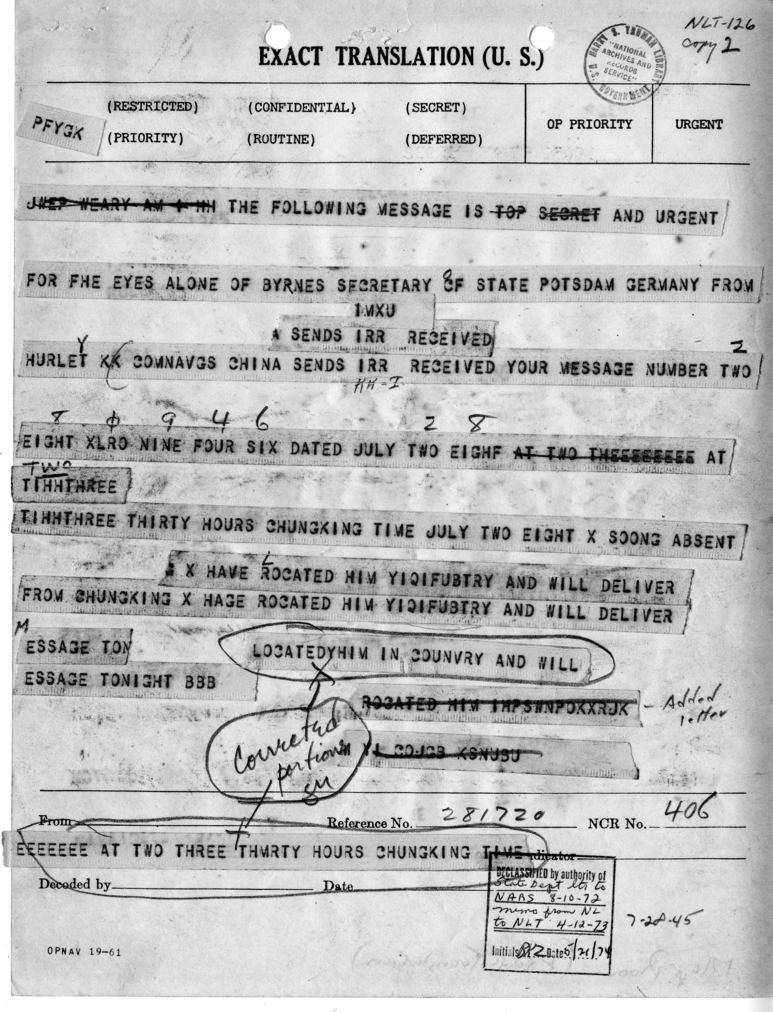 NLT-126
Copy 2
EXACT TRANSLATION (U. S.)
U. S. HARRY S. TRUMAN LIBRARY
"NATIONAL
ARCHIVES AND
RECORDS
SERVICE"
GOVERNMENT
(RESTRICTED) (CONFIDENTIAL) (SECRET)
OP PRIORITY URGENT
PFYGK
(PRIORITY) (ROUTINE) (DEFERRED)
JWEP WEARY AM HH THE FOLLOWING MESSAGE IS TOP SECRET AND URGENT
FOR FHE EYES ALONE OF BYRNES SECRETARY OF STATE POTSDAM GERMANY FROM
IMXU
A SENDS IRR RECEIVED
Y 2
HURLET KK COMNAVGS CHINA SENDS IRR RECEIVED YOUR MESSAGE NUMBER TWO
KK-I
8 ϕ 9 4 6 2 8
EIGHT XLRO NINE FOUR SIX DATED JULY TWO EIGHF AT TWO THEEEEEEEE AT
TWO
TIHHTHREE
TIHHTHREE THIRTY HOURS CHUNGKING TIME JULY TWO EIGHT X SOONG ABSENT
L
X HAVE ROCATED HIM YIQIFUBTRY AND WILL DELIVER
FROM CHUNGKING X HAGE ROCATED HIM YIQIFUBTRY AND WILL DELIVER
M
ESSAGE TON
LOCATEDYHIM IN COUNVRY AND WILL
ESSAGE TONIGHT BBB
ROCATED HIM IHPSWNPOKXRJK - Added
letter
Corrected
portions
YL COJCB KSNUSU
From Reference No. 281720 NCR No. 406
EEEEEEE AT TWO THREE THMRTY HOURS CHUNGKING TIME dicator
Decoded by Date
DECLASSIFIED by authority of
State Dept ltr to
NARS 8-10-72
memo from NL
to NLT 4-12-73
Initials Date 5/21/74
7-28-45
OPNAV 19-61